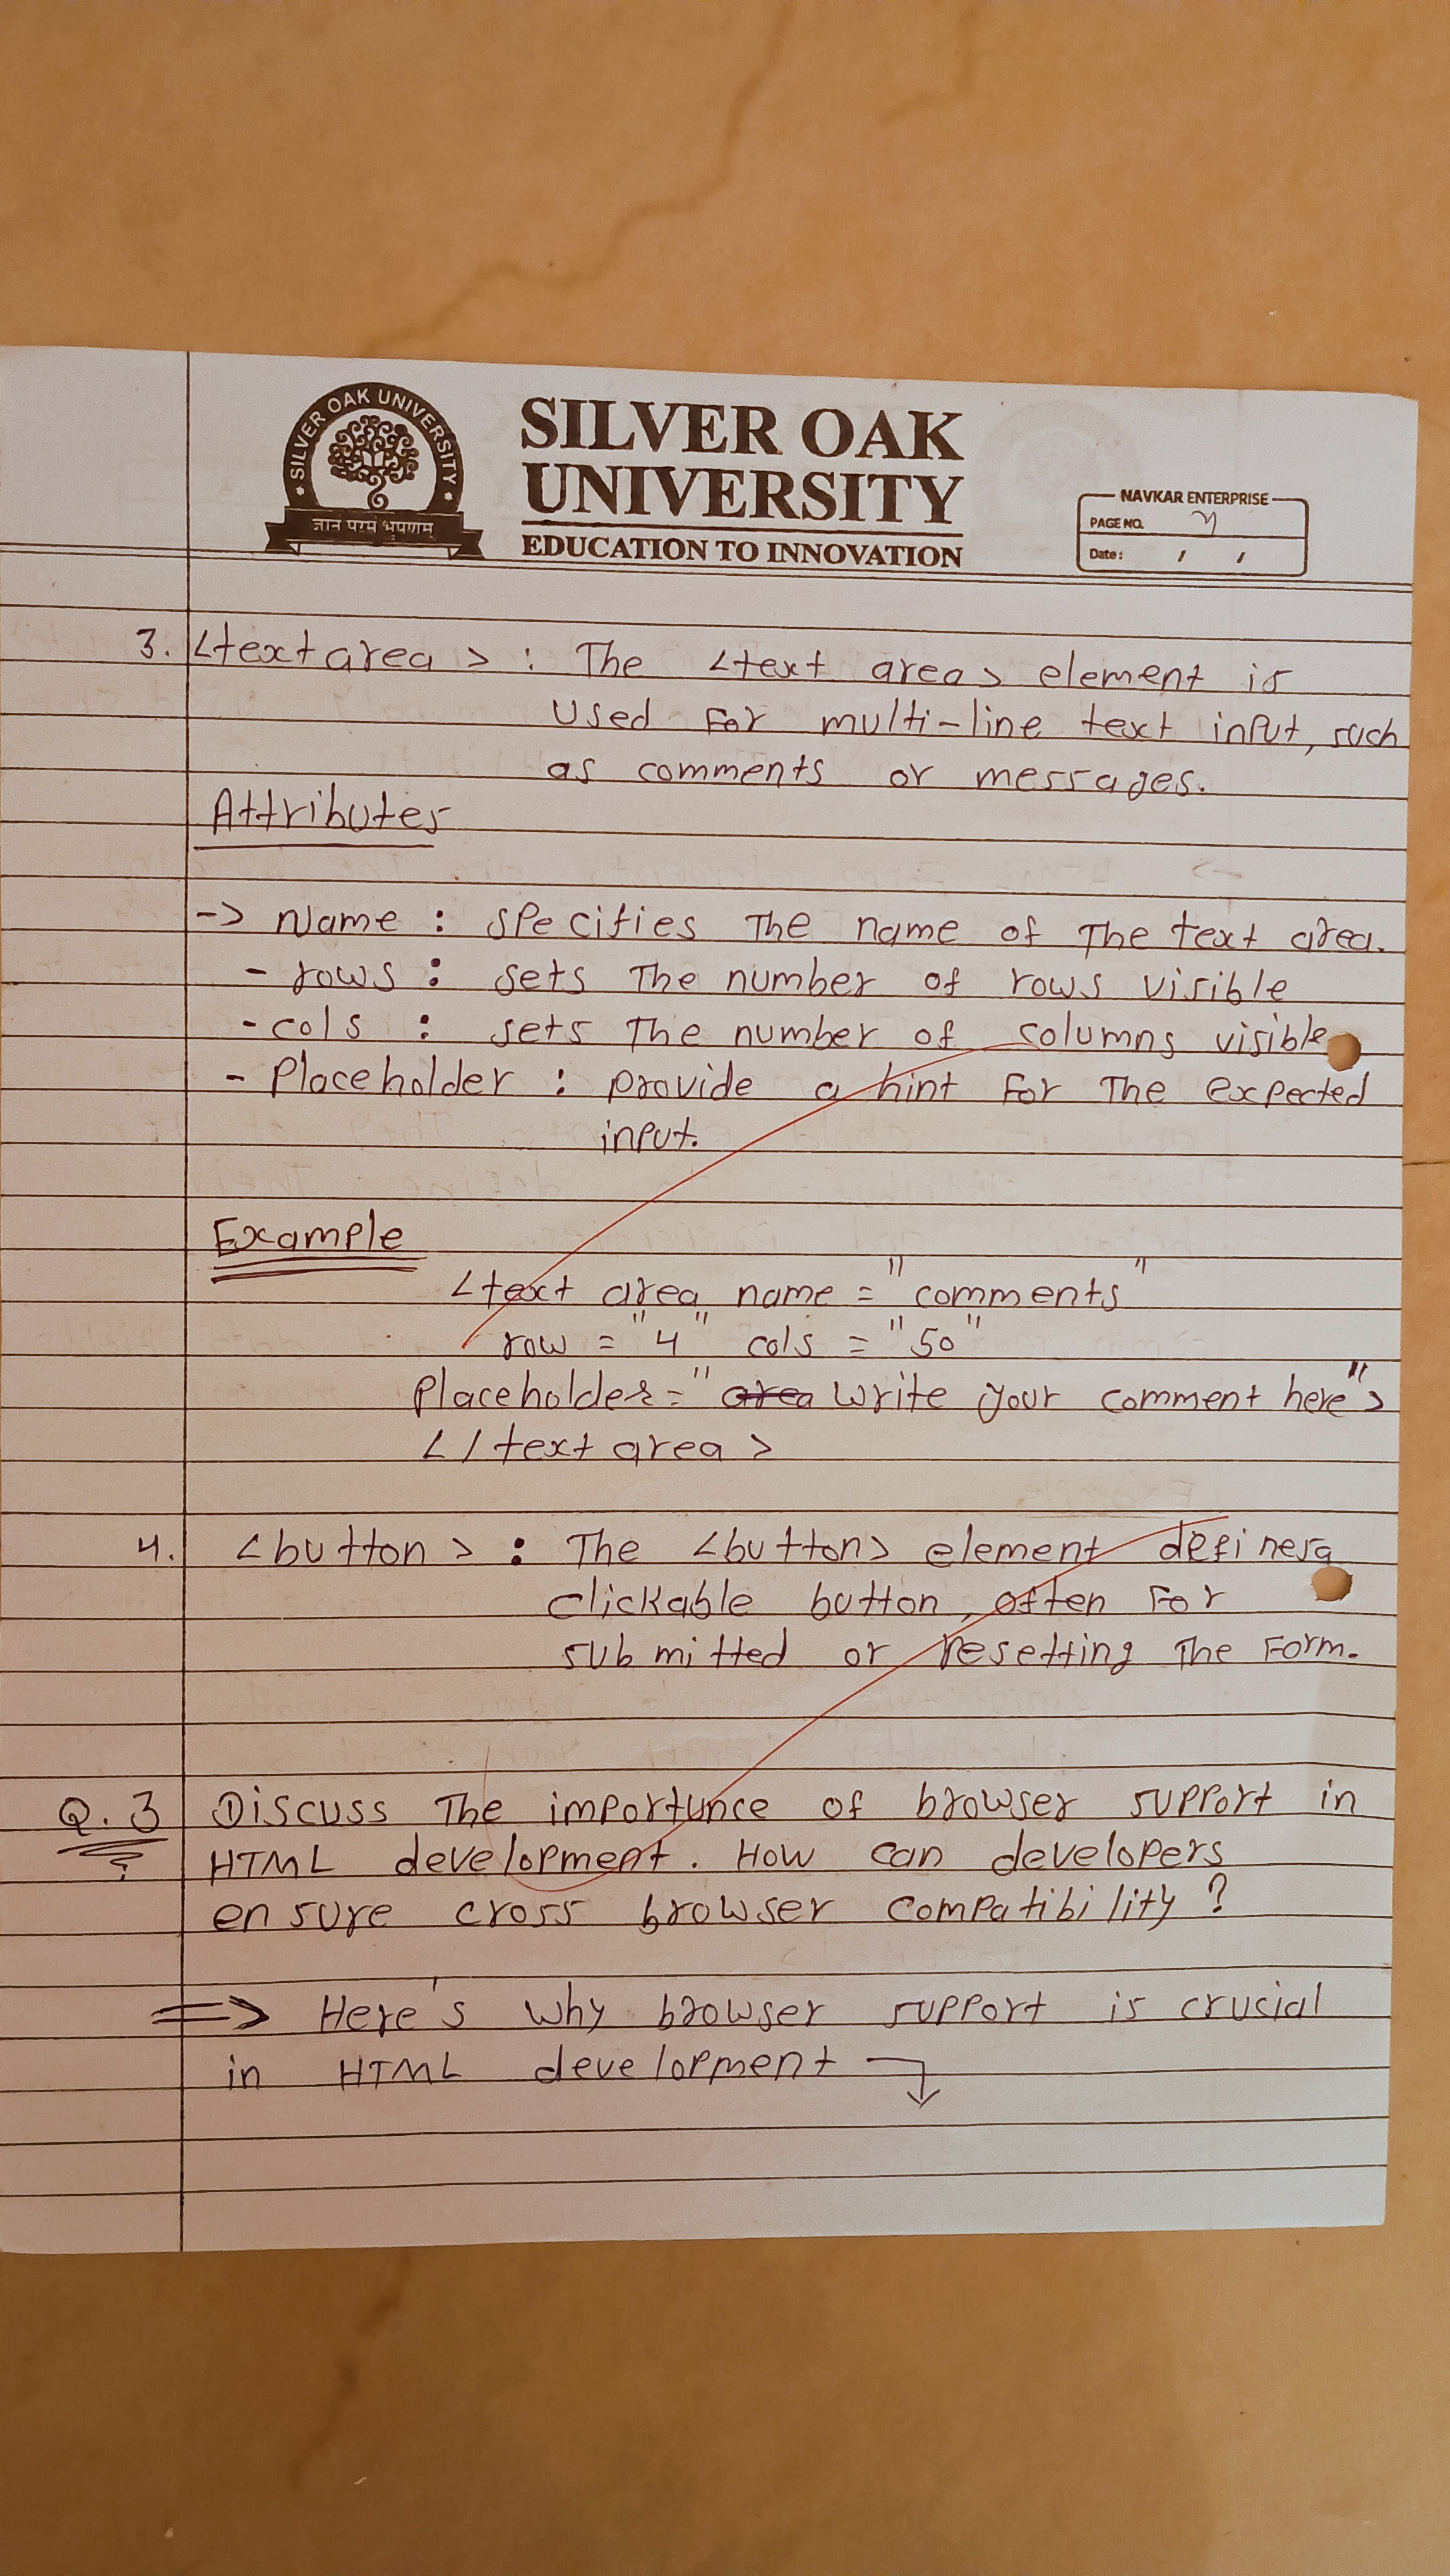 SILVER OAK UNIVERSITY
ज्ञानं परमं भूषणम्
SILVER OAK
UNIVERSITY
EDUCATION TO INNOVATION
NAVKAR ENTERPRISE
PAGE NO.
Date: / /
3. <textarea> : The <text area> element is
used for multi-line text input, such
as comments or messages.
Attributes
-> Name : specifies The name of The text area.
- rows : sets The number of rows visible
- cols : sets The number of columns visible
- Placeholder : provide a hint for The expected
input.
Example
<text area name = "comments"
row = "4" cols = "50"
Placeholder = "area write your comment here">
</textarea>
4. <button> : The <button> element defines a
clickable button, often for
submitted or resetting The form.
Q.3 Discuss The importance of browser support in
HTML development. How can developers
ensure cross browser compatibility?
=> Here's why browser support is crucial
in HTML development